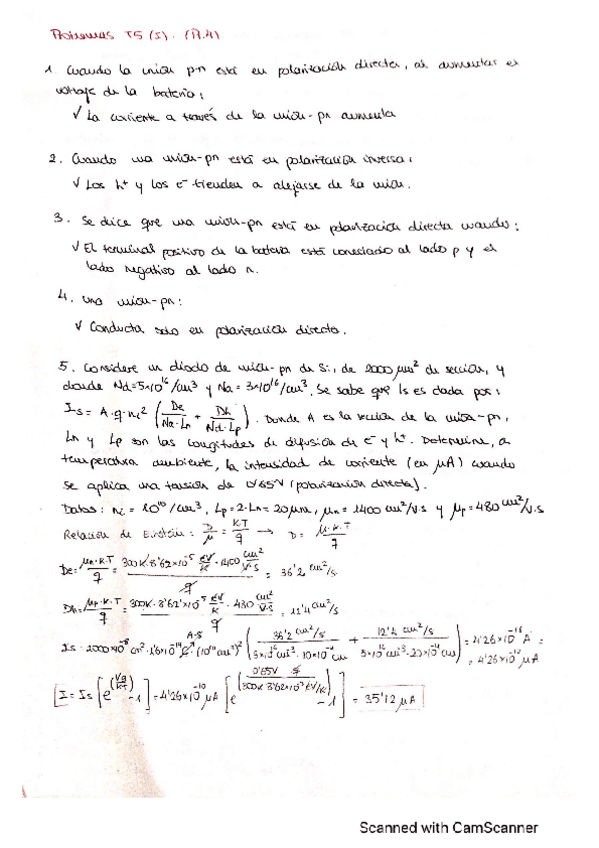 Problemas T5 (I). (A.4)
1. Cuando la unión p-n está en polarización directa, al aumentar el
voltaje de la batería:
✓ La corriente a través de la unión-pn aumenta
2. Cuando una unión-pn está en polarización inversa:
✓ Los h⁺ y los e⁻ tienden a alejarse de la unión.
3. Se dice que una unión-pn está en polarización directa cuando:
✓ El terminal positivo de la batería está conectado al lado p y el
lado negativo al lado n.
4. Una unión-pn:
✓ Conducta solo en polarización directa.
5. Considere un diodo de unión-pn de Si, de 2000 μm² de sección, y
donde Nd=5×10¹⁶/cm³ y Na = 3×10¹⁶/cm³. Se sabe que Is es dada por:
Is = A·q·ni² (De/(Na·Ln) + Dh/(Nd·Lp)). Donde A es la sección de la unión-pn,
Ln y Lp son las longitudes de difusión de e⁻ y h⁺. Determine, a
temperatura ambiente, la intensidad de corriente (en μA) cuando
se aplica una tensión de 0'65V (polarización directa).
Datos: ni = 10¹⁰/cm³, Lp=2·Ln=20μm, μn = 1400 cm²/V·s y μp=480 cm²/V·s
Relación de Einstein: D/μ = K·T/q → D = μ·K·T/q
De = μn·K·T/q = 300K·8'62×10⁻⁵ eV/K · 1400 cm²/V·s / q = 36'2 cm²/s
Dh = μp·K·T/q = 300K·8'62×10⁻⁵ eV/K · 480 cm²/V·s / q = 12'4 cm²/s
Is = 2000×10⁻⁸ cm² · 1'6×10⁻¹⁹ C (10¹⁰ cm⁻³)² (36'2 cm²/s / + 12'4 cm²/s / ) = 4'26×10⁻¹⁶ A =
I = Is [e^(Vq/KT) - 1] = 4'26×10⁻¹⁰ μA [e^(0'65V · q / 300K·8'62×10⁻⁵ eV/K) - 1] = 35'12 μA
Scanned with CamScanner